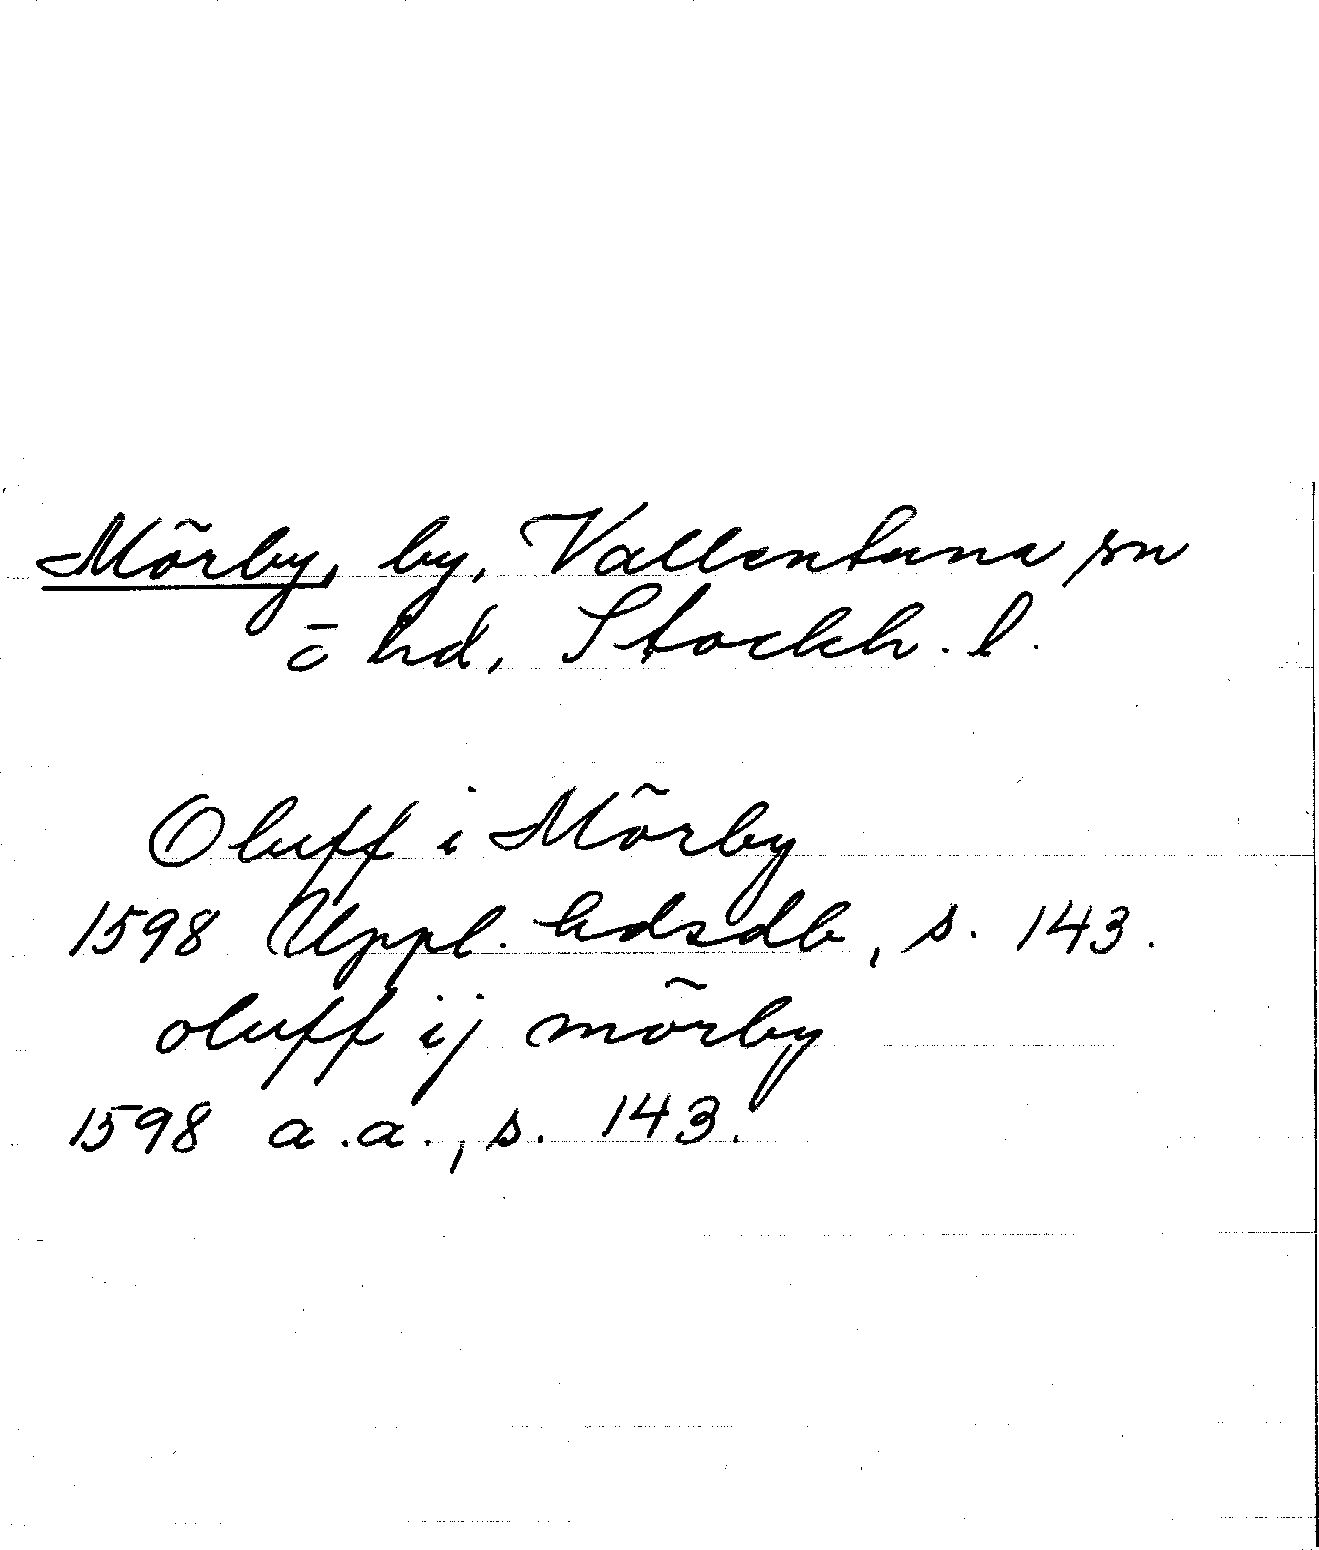 Mörby, by, Vallentuna sn
ö hd, Stockh. l.
Oluff i Mörby
1598 Uppl. hdsdb, s. 143.
oluff ij mörby
1598 a.a., s. 143.